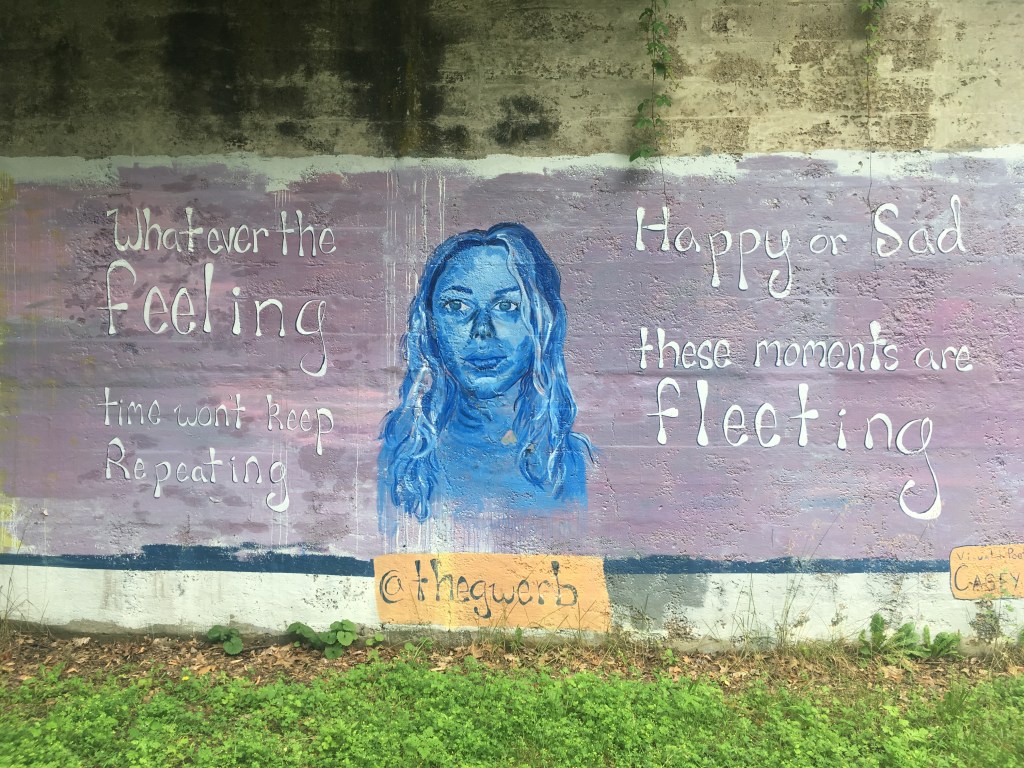 Whatever the
feeling
time won't keep
Repeating
Happy or Sad
these moments are
fleeting
@thegwerb
CASEY